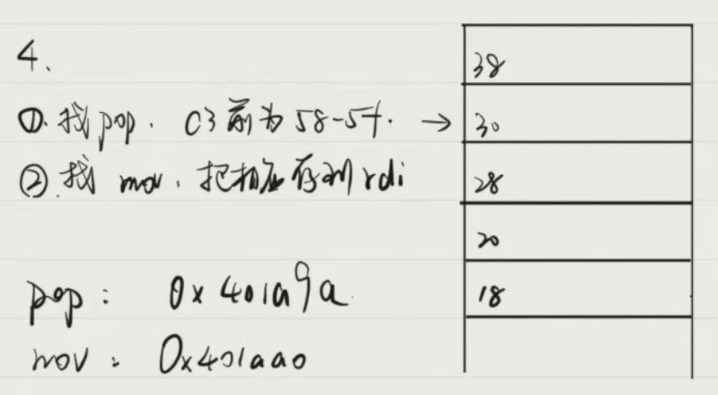 4、
①. 找pop. C3前为58-5f. →
②. 找 mov, 把相应存到rdi
pop: 0x401a9a
mov: 0x401aa0
38
30
28
20
18